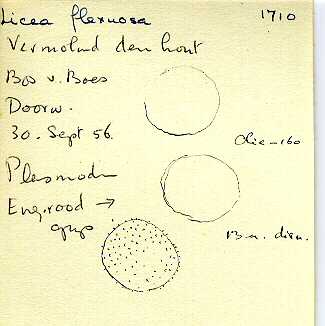 Licea flexuosa 1710
Vermolmd dennhout
Bos v. Boes
Doorw.
30. Sept 56.
Olie-160
Plasmod
Eng.rood →
grijs